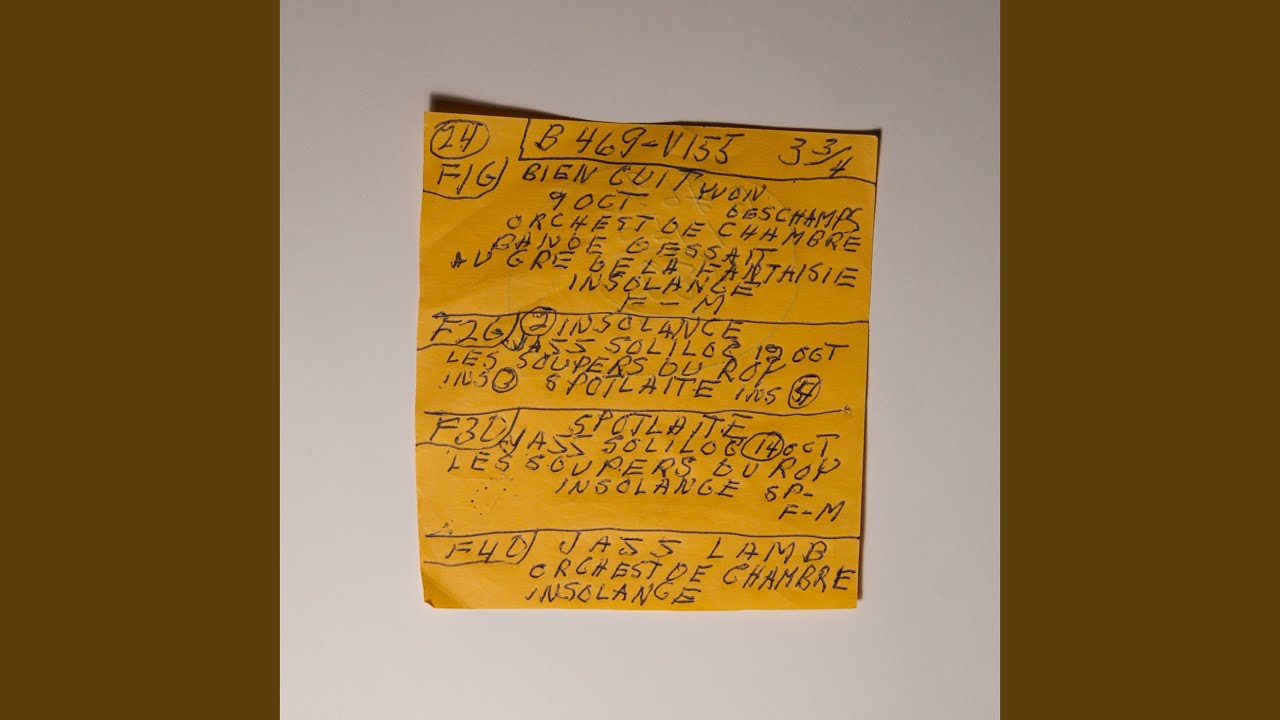 24 B 469-V155 3 3/4
F1G BIEN CUIT YVON
9 OCT. DESCHAMPS
ORCHEST DE CHAMBRE
BANDE DESSAIT
AU GRE DE LA FANTAISIE
INSOLANGE
F-M
F2G 2 INSOLANGE
JASS SOLILOC 19 OCT
LES SOUPERS DU ROY
INS SPOTLAITE INS
F3D SPOTLAITE
JASS SOLILOC 14 OCT
LES SOUPERS DU ROY
INSOLANGE SP-
F-M
F4D JASS LAMB
ORCHEST DE CHAMBRE
INSOLANGE